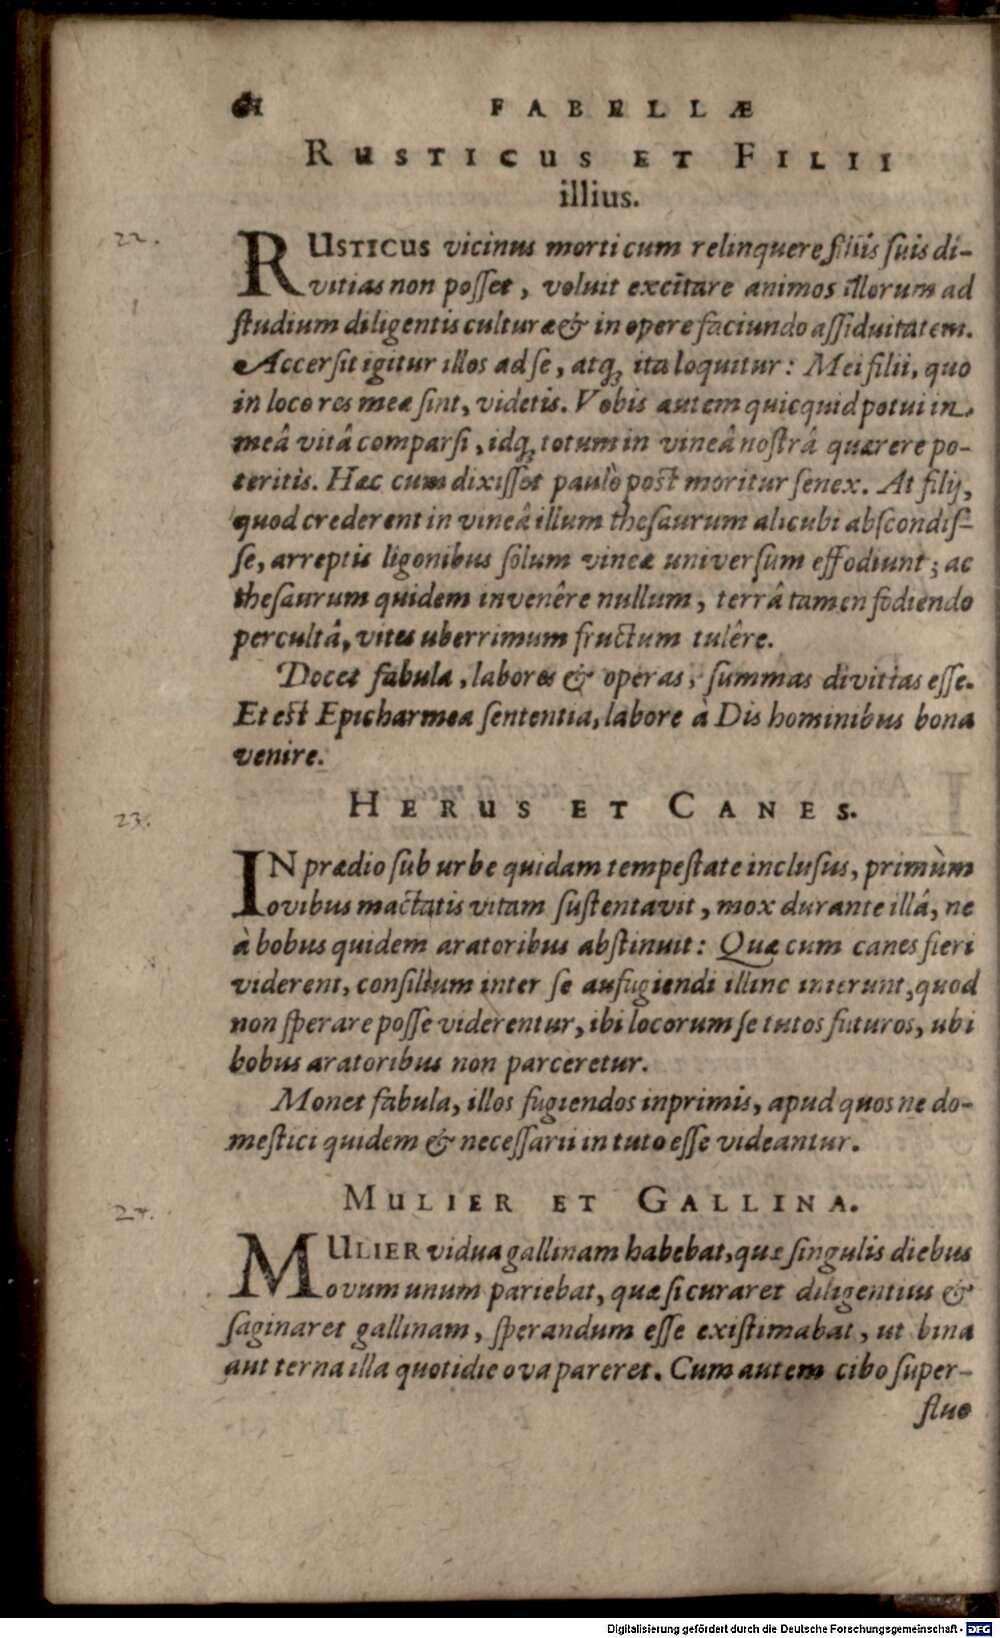 FABELLÆ
RUSTICUS ET FILII
illius.
22.
RUSTICUS vicinus morti cum relinquere filiis suis di-
vitias non posset, voluit excitare animos illorum ad
studium diligentis culturæ & in opere faciundo assiduitatem.
Accersit igitur illos ad se, atq; ita loquitur: Mei filii, quo
in loco res meæ sint, videtis. Vobis autem quicquid potui in
meâ vitâ comparsi, idq; totum in vineâ nostrâ quærere po-
teritis. Hæc cum dixisset paulò post moritur senex. At filij,
quod crederent in vineâ illum thesaurum alicubi abscondis-
se, arreptis ligonibus solum vineæ universum effodiunt; ac
thesaurum quidem invenêre nullum, terrâ tamen fodiendo
percultâ, vites uberrimum fructum tulêre.
Docet fabula, labores & operas, summas divitias esse.
Et est Epicharmea sententia, labore à Dis hominibus bona
venire.
23.
HERUS ET CANES.
IN prædio sub urbe quidam tempestate inclusus, primùm
ovibus mactatis vitam sustentavit, mox durante illâ, ne
à bobus quidem aratoribus abstinuit: Quæ cum canes fieri
viderent, consilium inter se aufugiendi illinc inierunt, quod
non sperare posse viderentur, ibi locorum se tutos futuros, ubi
bobus aratoribus non parceretur.
Monet fabula, illos fugiendos inprimis, apud quos ne do-
mestici quidem & necessarii in tuto esse videantur.
24.
MULIER ET GALLINA.
MULIER vidua gallinam habebat, quæ singulis diebus
ovum unum pariebat, quæ si curaret diligentius &
saginaret gallinam, sperandum esse existimabat, ut bina
aut terna illa quotidie ova pareret. Cum autem cibo super-
fluo
Digitalisierung gefördert durch die Deutsche Forschungsgemeinschaft - DFG